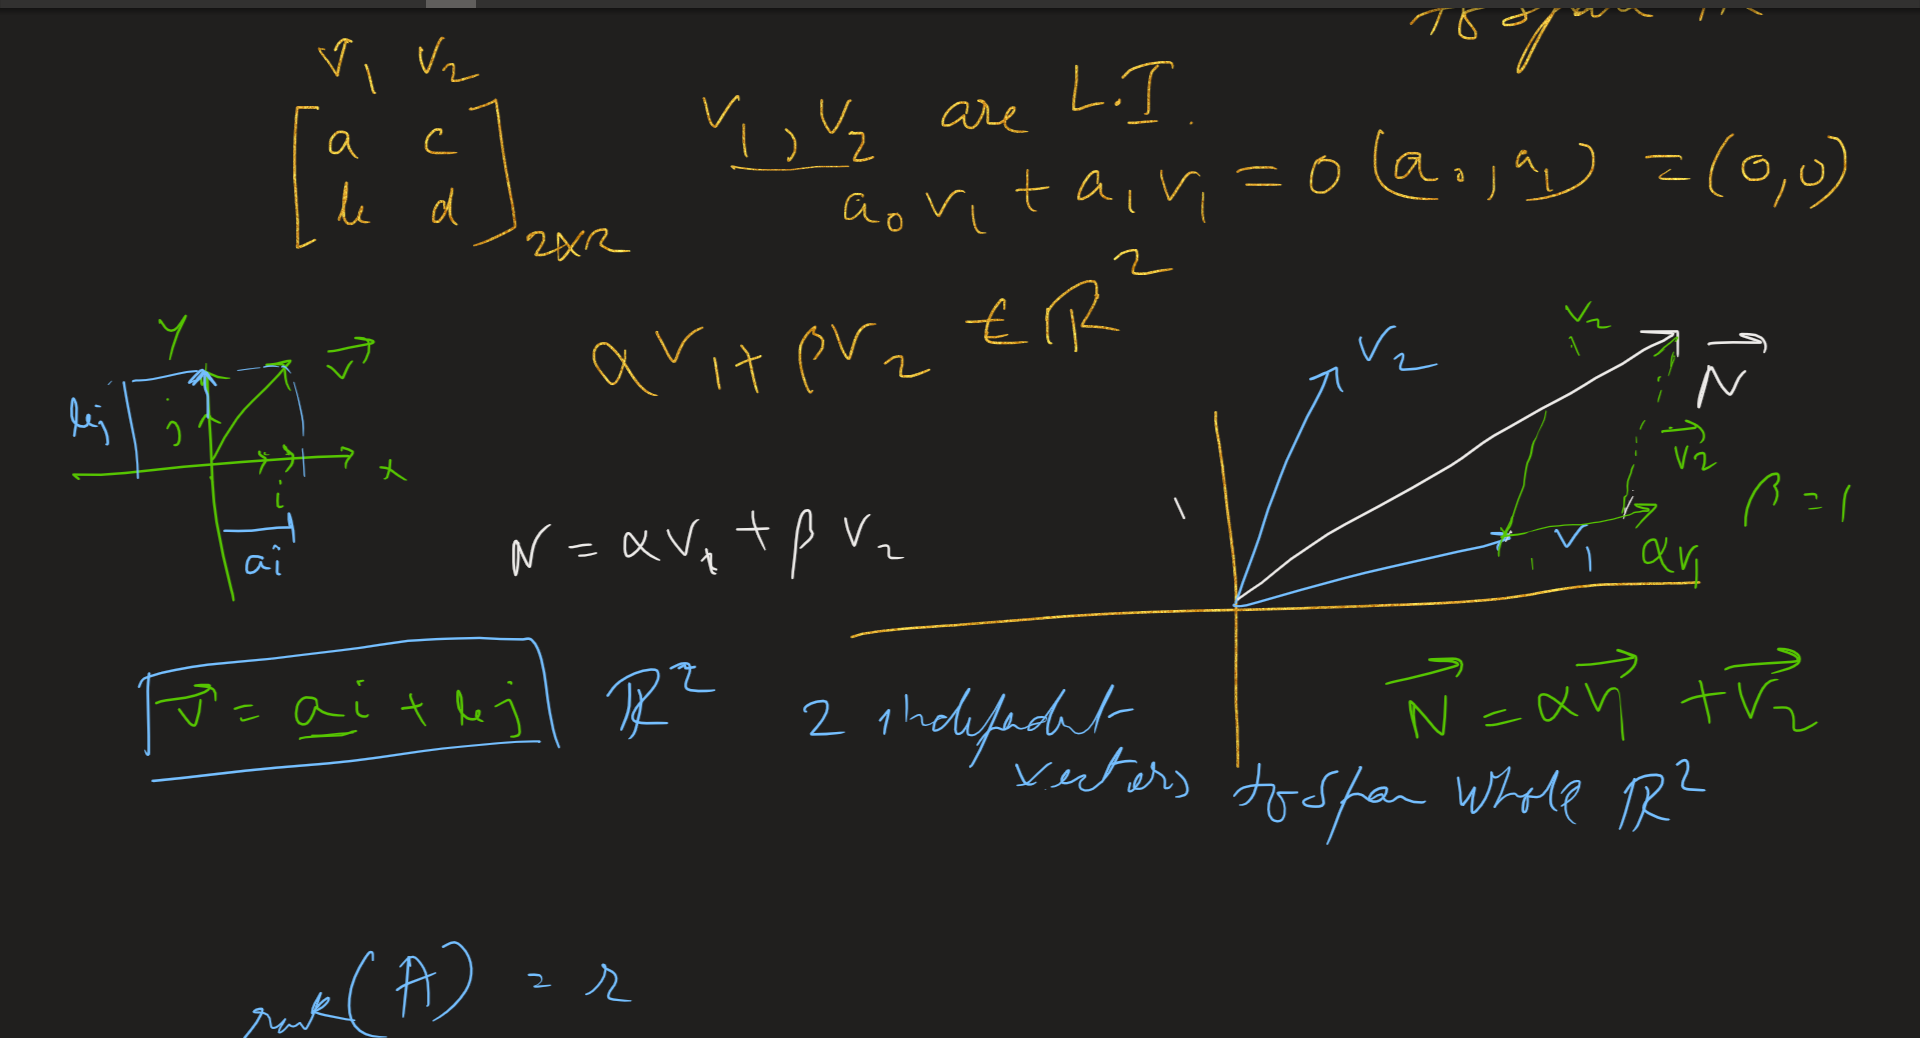 to span
v₁ v₂
[a c
b d]₂ₓ₂
v₁, v₂ are L.I.
a₀v₁ + a₁v₁ = 0 (a₀, a₁) = (0,0)
αv₁ + βv₂ ∈ ℝ²
y
v⃗
bj
j
x
i
ai
v₂
v₂
N⃗
v⃗₂
β = 1
v₁
αv₁
N = αv₁ + βv₂
v⃗ = ai + bj
ℝ²
2 independent
vectors to span whole ℝ²
N⃗ = αv⃗₁ + v⃗₂
rank(A) = r